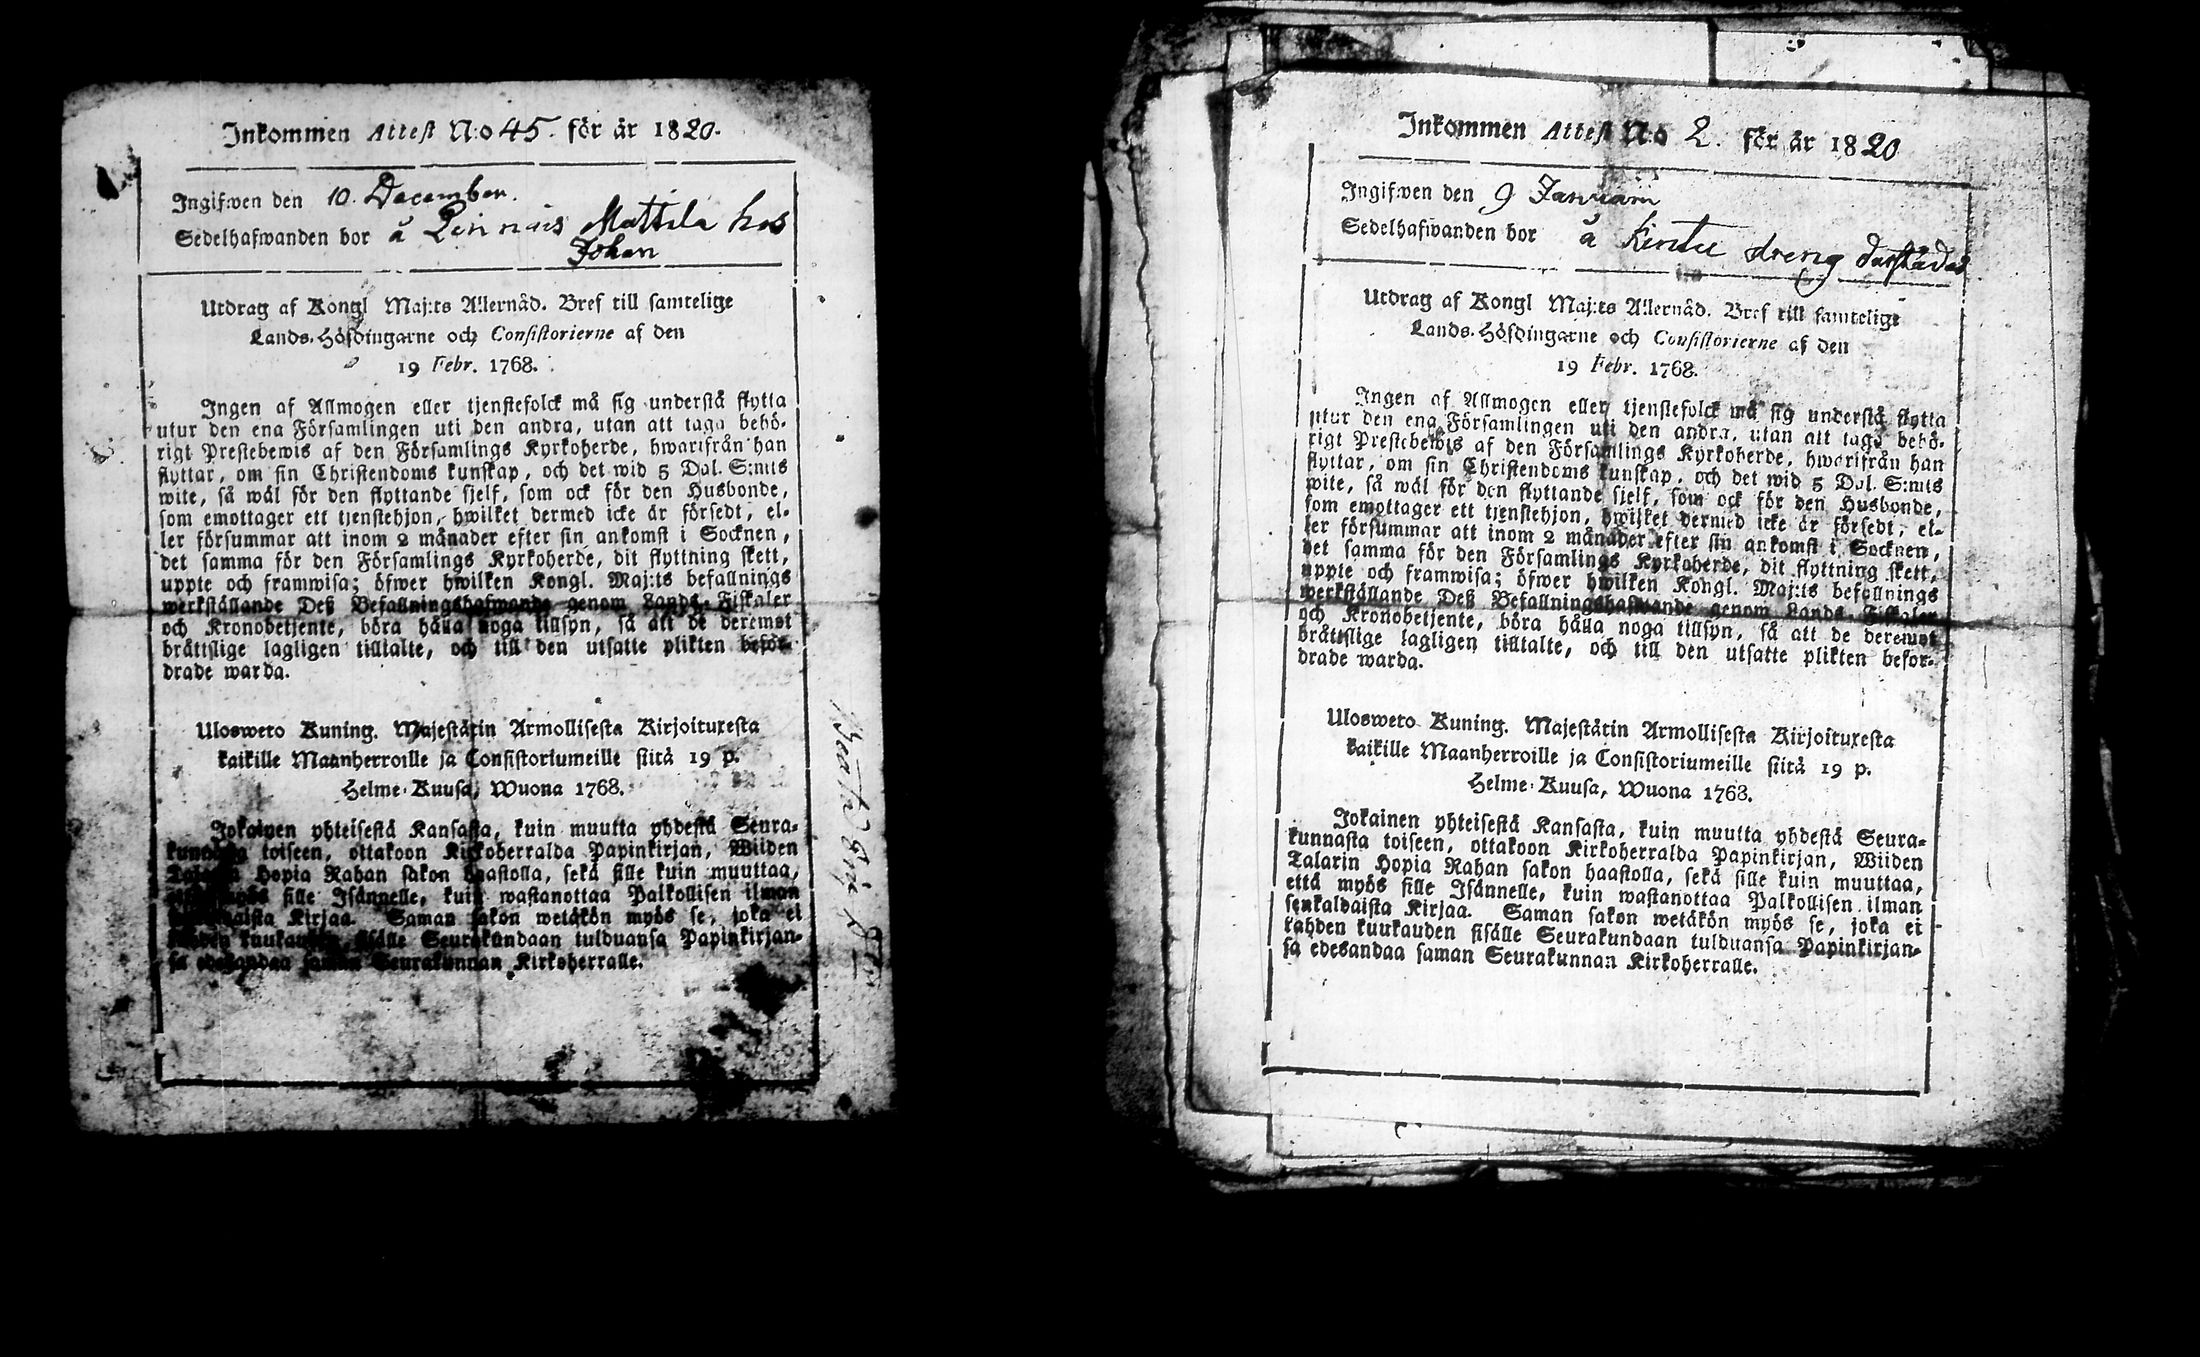 Inkommen Attest N:o 45. för år 1820.
Ingifwen den 10. December.
Sedelhafwanden bor å Linnais Mattila hos
Johan
Utdrag af Kongl Maj:ts Allernåd. Bref till samtelige
Lands-Höfdingarne och Consistorierne af den
19 Febr. 1768.
Ingen af Allmogen eller tjenstefolck må sig understå flytta
utur den ena Församlingen uti den andra, utan att taga behö-
rigt Prestebewis af den Församlings Kyrkoherde, hwarifrån han
flyttar, om sin Christendoms kunskap, och det wid 5 Dal. S:mts
wite, så wäl för den flyttande sjelf, som ock för den Husbonde,
som emottager ett tjenstehjon, hwilket dermed icke är försedt, el-
ler försummar att inom 2 månader efter sin ankomst i Socknen,
det samma för den Församlings Kyrkoherde, dit flyttning skett,
uppte och framwisa; öfwer hwilken Kongl. Maj:ts befallnings
werkställande Deß Befallningshafwande genom Lands-Fiskaler
och Kronobetjente, böra hålla noga tillsyn, så att de deremot
bråttslige lagligen tilltalte, och till den utsatte plikten befor-
drade warda.
Ulosweto Kuning. Majestätin Armollisesta Kirjoituxesta
kaikille Maanherroille ja Consistoriumeille siitä 19 p.
Helme-Kuusa, Wuona 1768.
Jokainen yhteisestä Kansasta, kuin muutta yhdestä Seura-
kunnasta toiseen, ottakoon Kirkoherralda Papinkirjan, Wiiden
Talarin Hopia Rahan sakon haastolla, sekä sille kuin muuttaa,
että myös sille Isännelle, kuin wastanottaa Palkollisen ilman
senkaldaista Kirjaa. Saman sakon wetäkön myös se, joka ei
kahden kuukauden sisälle Seurakundaan tulduansa Papinkirjan-
sa edesandaa saman Seurakunnan Kirkoherralle.
Inkommen Attest N:o 2. för år 1820
Ingifwen den 9 Januarii
Sedelhafwanden bor å Kinttu dreng derstädes
Utdrag af Kongl Maj:ts Allernåd. Bref till samtelige
Lands-Höfdingarne och Consistorierne af den
19 Febr. 1768.
Ingen af Allmogen eller tjenstefolck må sig understå flytta
utur den ena Församlingen uti den andra, utan att taga behö-
rigt Prestebewis af den Församlings Kyrkoherde, hwarifrån han
flyttar, om sin Christendoms kunskap, och det wid 5 Dal. S:mts
wite, så wäl för den flyttande sjelf, som ock för den Husbonde,
som emottager ett tjenstehjon, hwilket dermed icke är försedt, el-
ler försummar att inom 2 månader efter sin ankomst i Socknen,
det samma för den Församlings Kyrkoherde, dit flyttning skett,
uppte och framwisa; öfwer hwilken Kongl. Maj:ts befallnings
werkställande Deß Befallningshafwande genom Lands-Fiskaler
och Kronobetjente, böra hålla noga tillsyn, så att de deremot
bråttslige lagligen tilltalte, och till den utsatte plikten befor-
drade warda.
Ulosweto Kuning. Majestätin Armollisesta Kirjoituxesta
kaikille Maanherroille ja Consistoriumeille siitä 19 p.
Helme-Kuusa, Wuona 1768.
Jokainen yhteisestä Kansasta, kuin muutta yhdestä Seura-
kunnasta toiseen, ottakoon Kirkoherralda Papinkirjan, Wiiden
Talarin Hopia Rahan sakon haastolla, sekä sille kuin muuttaa,
että myös sille Isännelle, kuin wastanottaa Palkollisen ilman
senkaldaista Kirjaa. Saman sakon wetäkön myös se, joka ei
kahden kuukauden sisälle Seurakundaan tulduansa Papinkirjan-
sa edesandaa saman Seurakunnan Kirkoherralle.